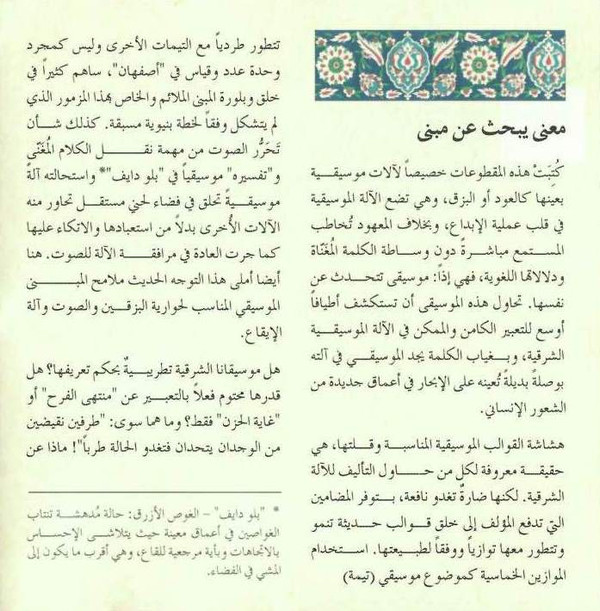 معنى يبحث عن مبنى
كُتِبَتْ هذه المقطوعات خصيصاً لآلات موسيقية
بعينها كالعود أو البزق، وهي تضع الآلة الموسيقية
في قلب عملية الإبداع، وبخلاف المعهود تُخاطب
المستمع مباشرةً دون وساطة الكلمة المُغنّاة
ودلالاتها اللغوية، فهي إذاً: موسيقى تتحدث عن
نفسها. تحاول هذه الموسيقى أن تستكشف أطيافاً
أوسع للتعبير الكامن والممكن في الآلة الموسيقية
الشرقية، وبغياب الكلمة يجد الموسيقي في آلته
بوصلةً بديلةً تُعينه على الإبحار في أعماق جديدة من
الشعور الإنساني.
هشاشة القوالب الموسيقية المناسبة وقلتها، هي
حقيقة معروفة لكل من حاول التأليف للآلة
الشرقية. لكنها ضارةٌ تغدو نافعة، بتوفر المضامين
التي تدفع المؤلف إلى خلق قوالب حديثة تنمو
وتتطور معها توازياً ووفقاً لطبيعتها. استخدام
الموازين الخماسية كموضوع موسيقي (تيمة)
تتطور طردياً مع التيمات الأخرى وليس كمجرد
وحدة عدد وقياس في "أصفهان"، ساهم كثيراً في
خلق وبلورة المبنى الملائم والخاص بهذا المزمور الذي
لم يتشكل وفقاً لخطة بنيوية مسبقة. كذلك شأن
تَحَرُّر الصوت من مهمة نقل الكلام المُغَنّى
و"تفسيره" موسيقياً في "بلو دايف"* واستحالته آلةً
موسيقيةً تحلق في فضاء لحني مستقل تحاور منه
الآلات الأُخرى بدلاً من استعبادها والاتكاء عليها
كما جرت العادة في مرافقة الآلة للصوت. هنا
أيضا أملى هذا التوجه الحديث ملامح المبنى
الموسيقي المناسب لحوارية البزقين والصوت وآلة
الإيقاع.
هل موسيقانا الشرقية تطريبيةٌ بحكم تعريفها؟ هل
قدرها محتوم فعلاً بالتعبير عن "منتهى الفرح" أو
"غاية الحزن" فقط؟ وما هما سوى: "طرفين نقيضين
من الوجدان يتحدان فتغدو الحالة طرباً"! ماذا عن
* "بلو دايف" – الغوص الأزرق: حالة مُدهشة تنتاب
الغواصين في أعماق معينة حيث يتلاشى الإحساس
بالاتجاهات وبأية مرجعية للقاع، وهي أقرب ما يكون إلى
المشي في الفضاء.